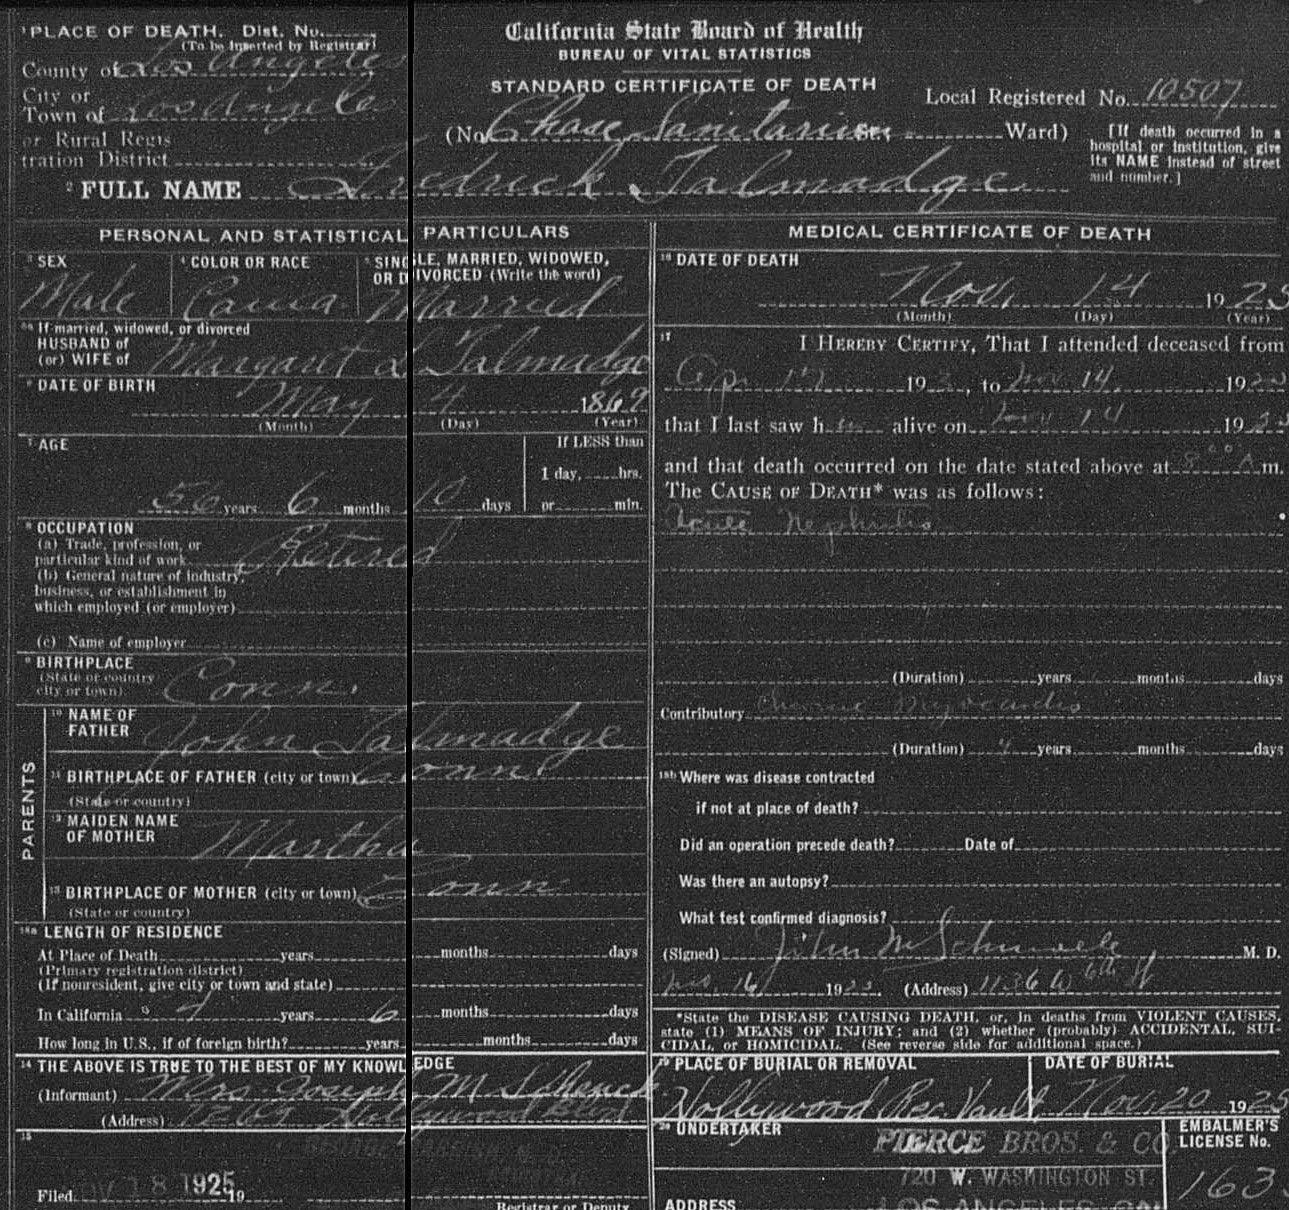 1 PLACE OF DEATH. Dist. No.
(To be Inserted by Registrar)
County of Los Angeles
City or
Town of Los Angeles
or Rural Regis
tration District
California State Board of Health
BUREAU OF VITAL STATISTICS
STANDARD CERTIFICATE OF DEATH
Local Registered No. 10507
(No. Chase Sanitarium St.; Ward)
[If death occurred in a
hospital or institution, give
its NAME instead of street
and number.]
2 FULL NAME Fredrick Talmadge
PERSONAL AND STATISTICAL PARTICULARS
3 SEX
Male
4 COLOR OR RACE
Cauca.
5 SINGLE, MARRIED, WIDOWED,
OR DIVORCED (Write the word)
Married
5a If married, widowed, or divorced
HUSBAND of
(or) WIFE of Margaret L Talmadge
6 DATE OF BIRTH
May 4 1869
(Month) (Day) (Year)
7 AGE
56 years 6 months 10 days
If LESS than
1 day, hrs.
or min.
8 OCCUPATION
(a) Trade, profession, or
particular kind of work Retired
(b) General nature of industry,
business, or establishment in
which employed (or employer)
(c) Name of employer
9 BIRTHPLACE
(State or country
city or town) Conn.
PARENTS
10 NAME OF
FATHER John Talmadge
11 BIRTHPLACE OF FATHER (city or town) Conn.
(State or country)
12 MAIDEN NAME
OF MOTHER Martha
13 BIRTHPLACE OF MOTHER (city or town) Conn
(State or country)
18a LENGTH OF RESIDENCE
At Place of Death years months days
(Primary registration district)
(If nonresident, give city or town and state)
In California 9 years 6 months days
How long in U.S., if of foreign birth? years months days
14 THE ABOVE IS TRUE TO THE BEST OF MY KNOWLEDGE
(Informant) Mrs. Joseph M Schenck
(Address) 7269 Hollywood Blvd
15
Filed NOV 18 1925 19
Registrar or Deputy
MEDICAL CERTIFICATE OF DEATH
16 DATE OF DEATH
Nov. 14 1925
(Month) (Day) (Year)
17 I HEREBY CERTIFY, That I attended deceased from
Apr 192 , to Nov 14. 1925
that I last saw him alive on Nov 14 1925
and that death occurred on the date stated above at 8 00 A m.
The CAUSE OF DEATH* was as follows:
Acute Nephritis
(Duration) years months days
Contributory Chronic Myocarditis
(Duration) 4 years months days
18b Where was disease contracted
if not at place of death?
Did an operation precede death? Date of
Was there an autopsy?
What test confirmed diagnosis?
(Signed) John M M. D.
Nov. 16 1925. (Address) 1136 W 6th St
*State the DISEASE CAUSING DEATH, or, in deaths from VIOLENT CAUSES,
state (1) MEANS OF INJURY; and (2) whether (probably) ACCIDENTAL, SUI-
CIDAL, or HOMICIDAL. (See reverse side for additional space.)
19 PLACE OF BURIAL OR REMOVAL
Hollywood Rec. Vault
DATE OF BURIAL
Nov. 20 1925
20 UNDERTAKER PIERCE BROS. & CO.
720 W. WASHINGTON ST.
ADDRESS LOS ANGELES, CAL
EMBALMER'S
LICENSE No.
163